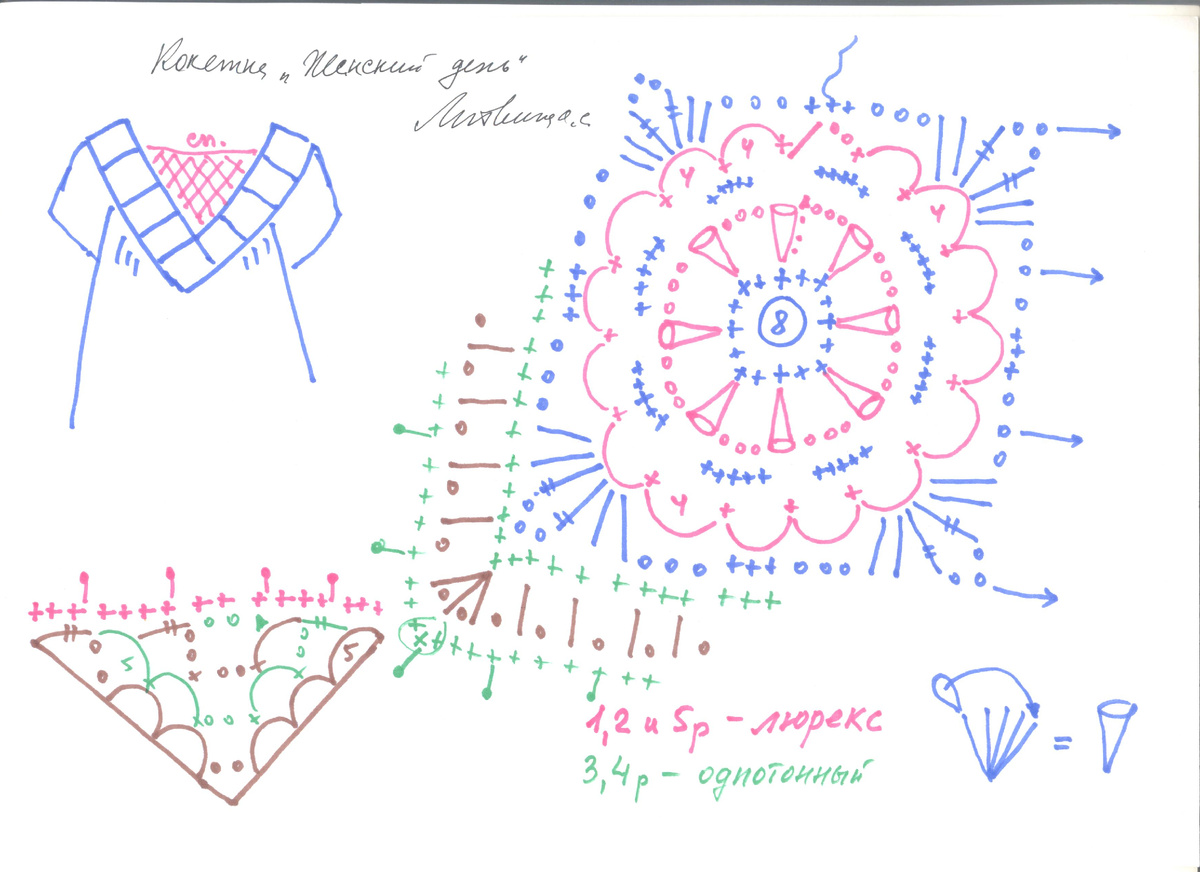 Кокетка „Женский день"
Литвина.с
сп.
ч
ч
ч
ч
8
5
5
1,2 и 5р – люрекс
3,4р – однотонный
=